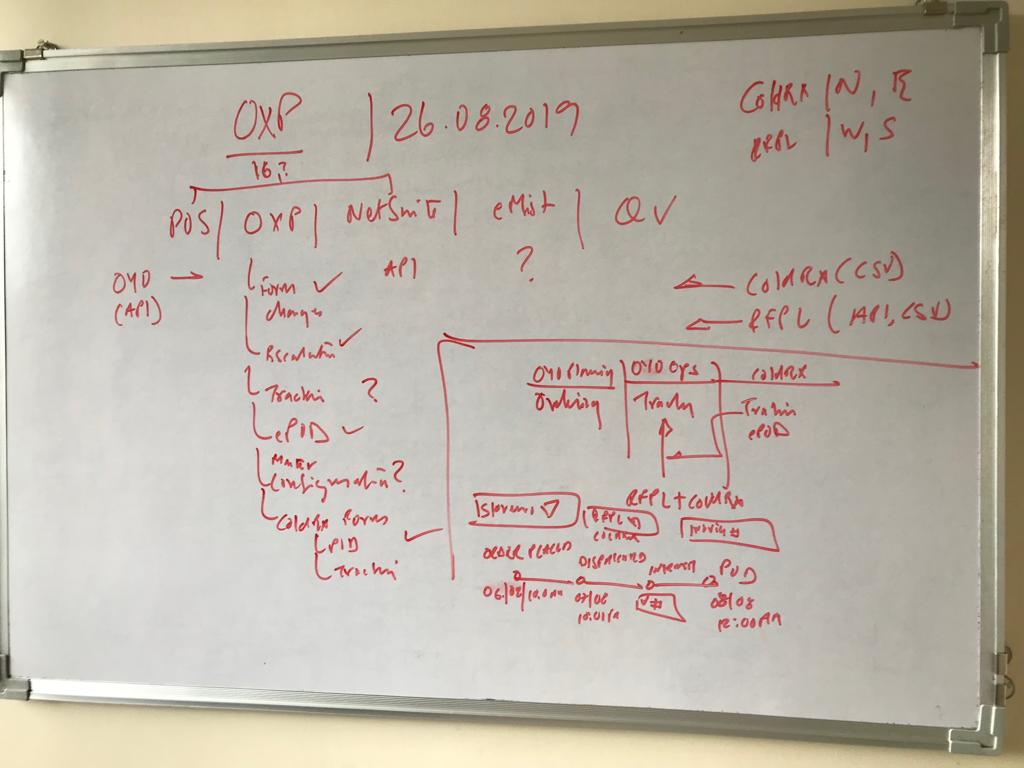 OXP | 26.08.2019
16,?
ColdRX | N, E
RFPL | W, S
POS | OXP | NetSuite | eMist | QV
OYO → Form ✓ API ?
(API) changes
Escalation ✓
Tracking ?
ePOD ✓
Master
Configuration ?
ColdRx Forms
POD ✓
Tracking
← ColdRX (CSV)
← RFPL (API, CSV)
OYO Planning | OYO Ops | ColdRX
Ordering | Tracking | Tracking
ePOD
RFPL + ColdRX
RFPL ▽
ColdRX
Invoice #
ORDER PLACED
DISPATCHED
INTRANSIT
POD
06/08/10.0AM
07/08
10.01PM
V #
08/08
12:00AM